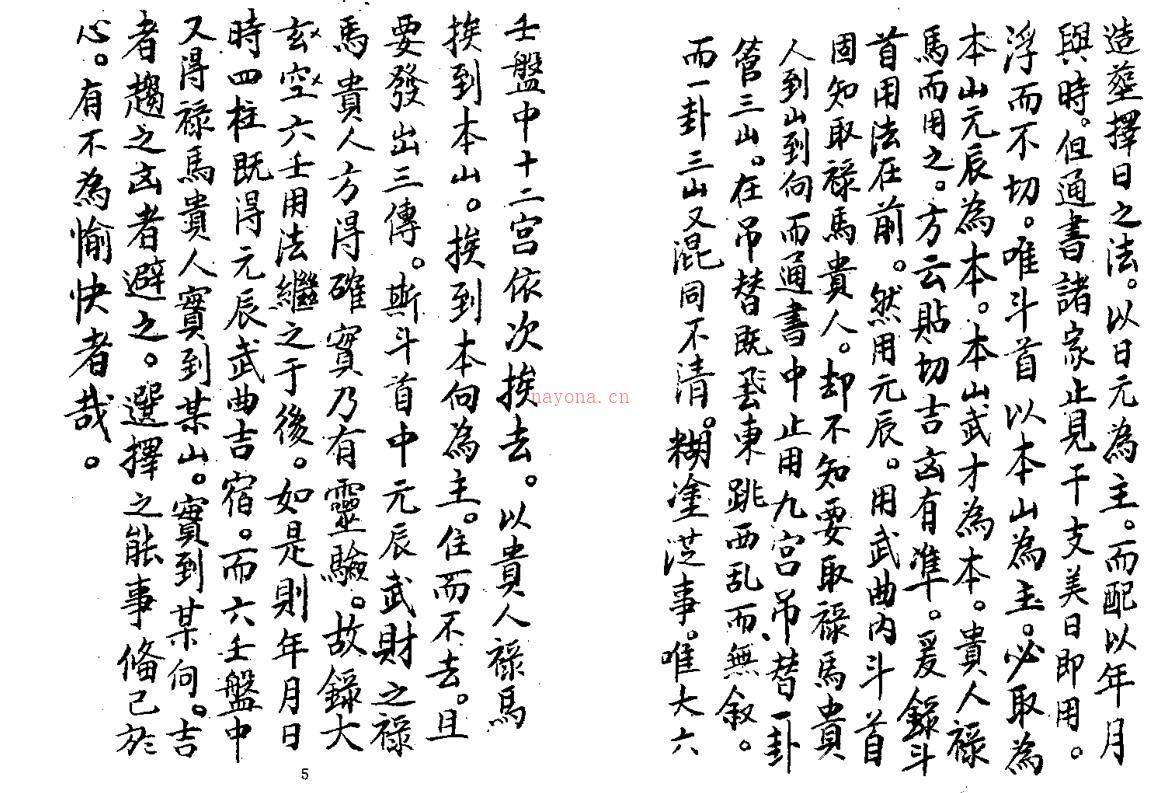 造塟擇日之法。以日元為主。而配以年月
與時。但通書諸家止見干支美日即用。
浮而不切。唯斗首以本山為主。必取為
本山元辰為本。本山武才為本。貴人祿
馬而用之。方云貼切吉凶有準。爰錄斗
首用法在前。然用元辰。用武曲內斗首
固知取祿馬貴人。却不知要取祿馬貴
人到山到向而通書中止用九宮吊替一卦
管三山。在吊替既飛東跳西乱而無叙。
而一卦三山又混同不清。糊塗了事。唯大六
壬盤中十二宮依次挨去。以貴人祿馬
挨到本山。挨到本向為主。住而不去。且
要發出三傳。斯斗首中元辰武財之祿
馬貴人方得確實乃有靈驗。故錄大
玄空六壬用法繼之于後。如是則年月日
時四柱既得元辰武曲吉宿。而六壬盤中
又得祿馬貴人實到某山。實到某向。吉
者趨之凶者避之。選擇之能事俻已於
心。有不為愉快者哉。
5
nayona.cn